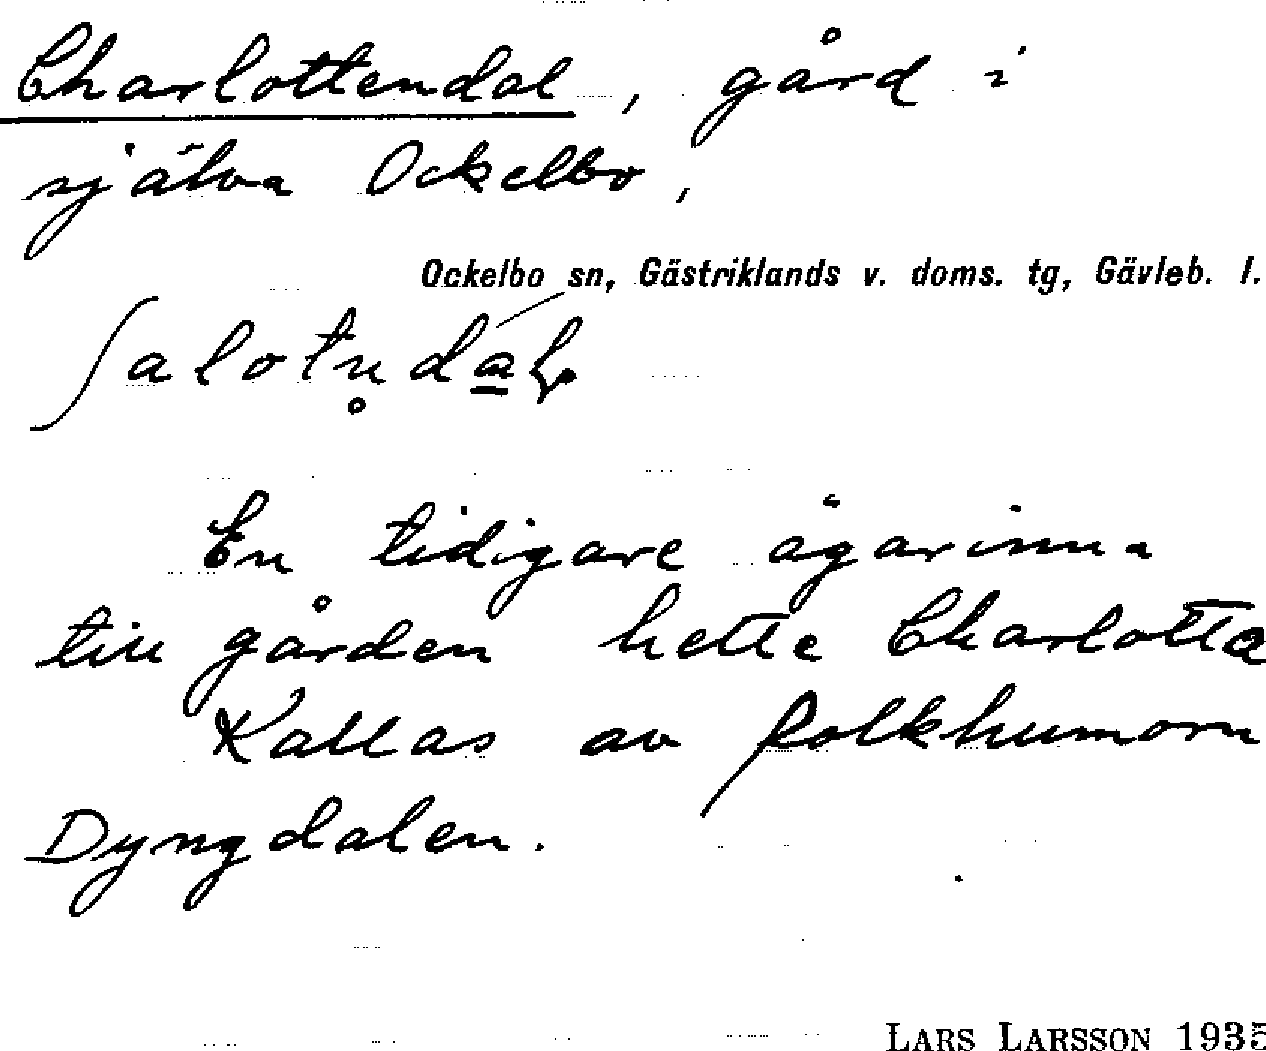 Charlottendal, gård i
själva Ockelbo,
Ockelbo sn, Gästriklands v. doms. tg, Gävleb. l.
ʃalotn̥da̲l
En tidigare ägarinna
till gården hette Charlotta
Kallas av folkhumorn
Dyngdalen.
LARS LARSSON 1935